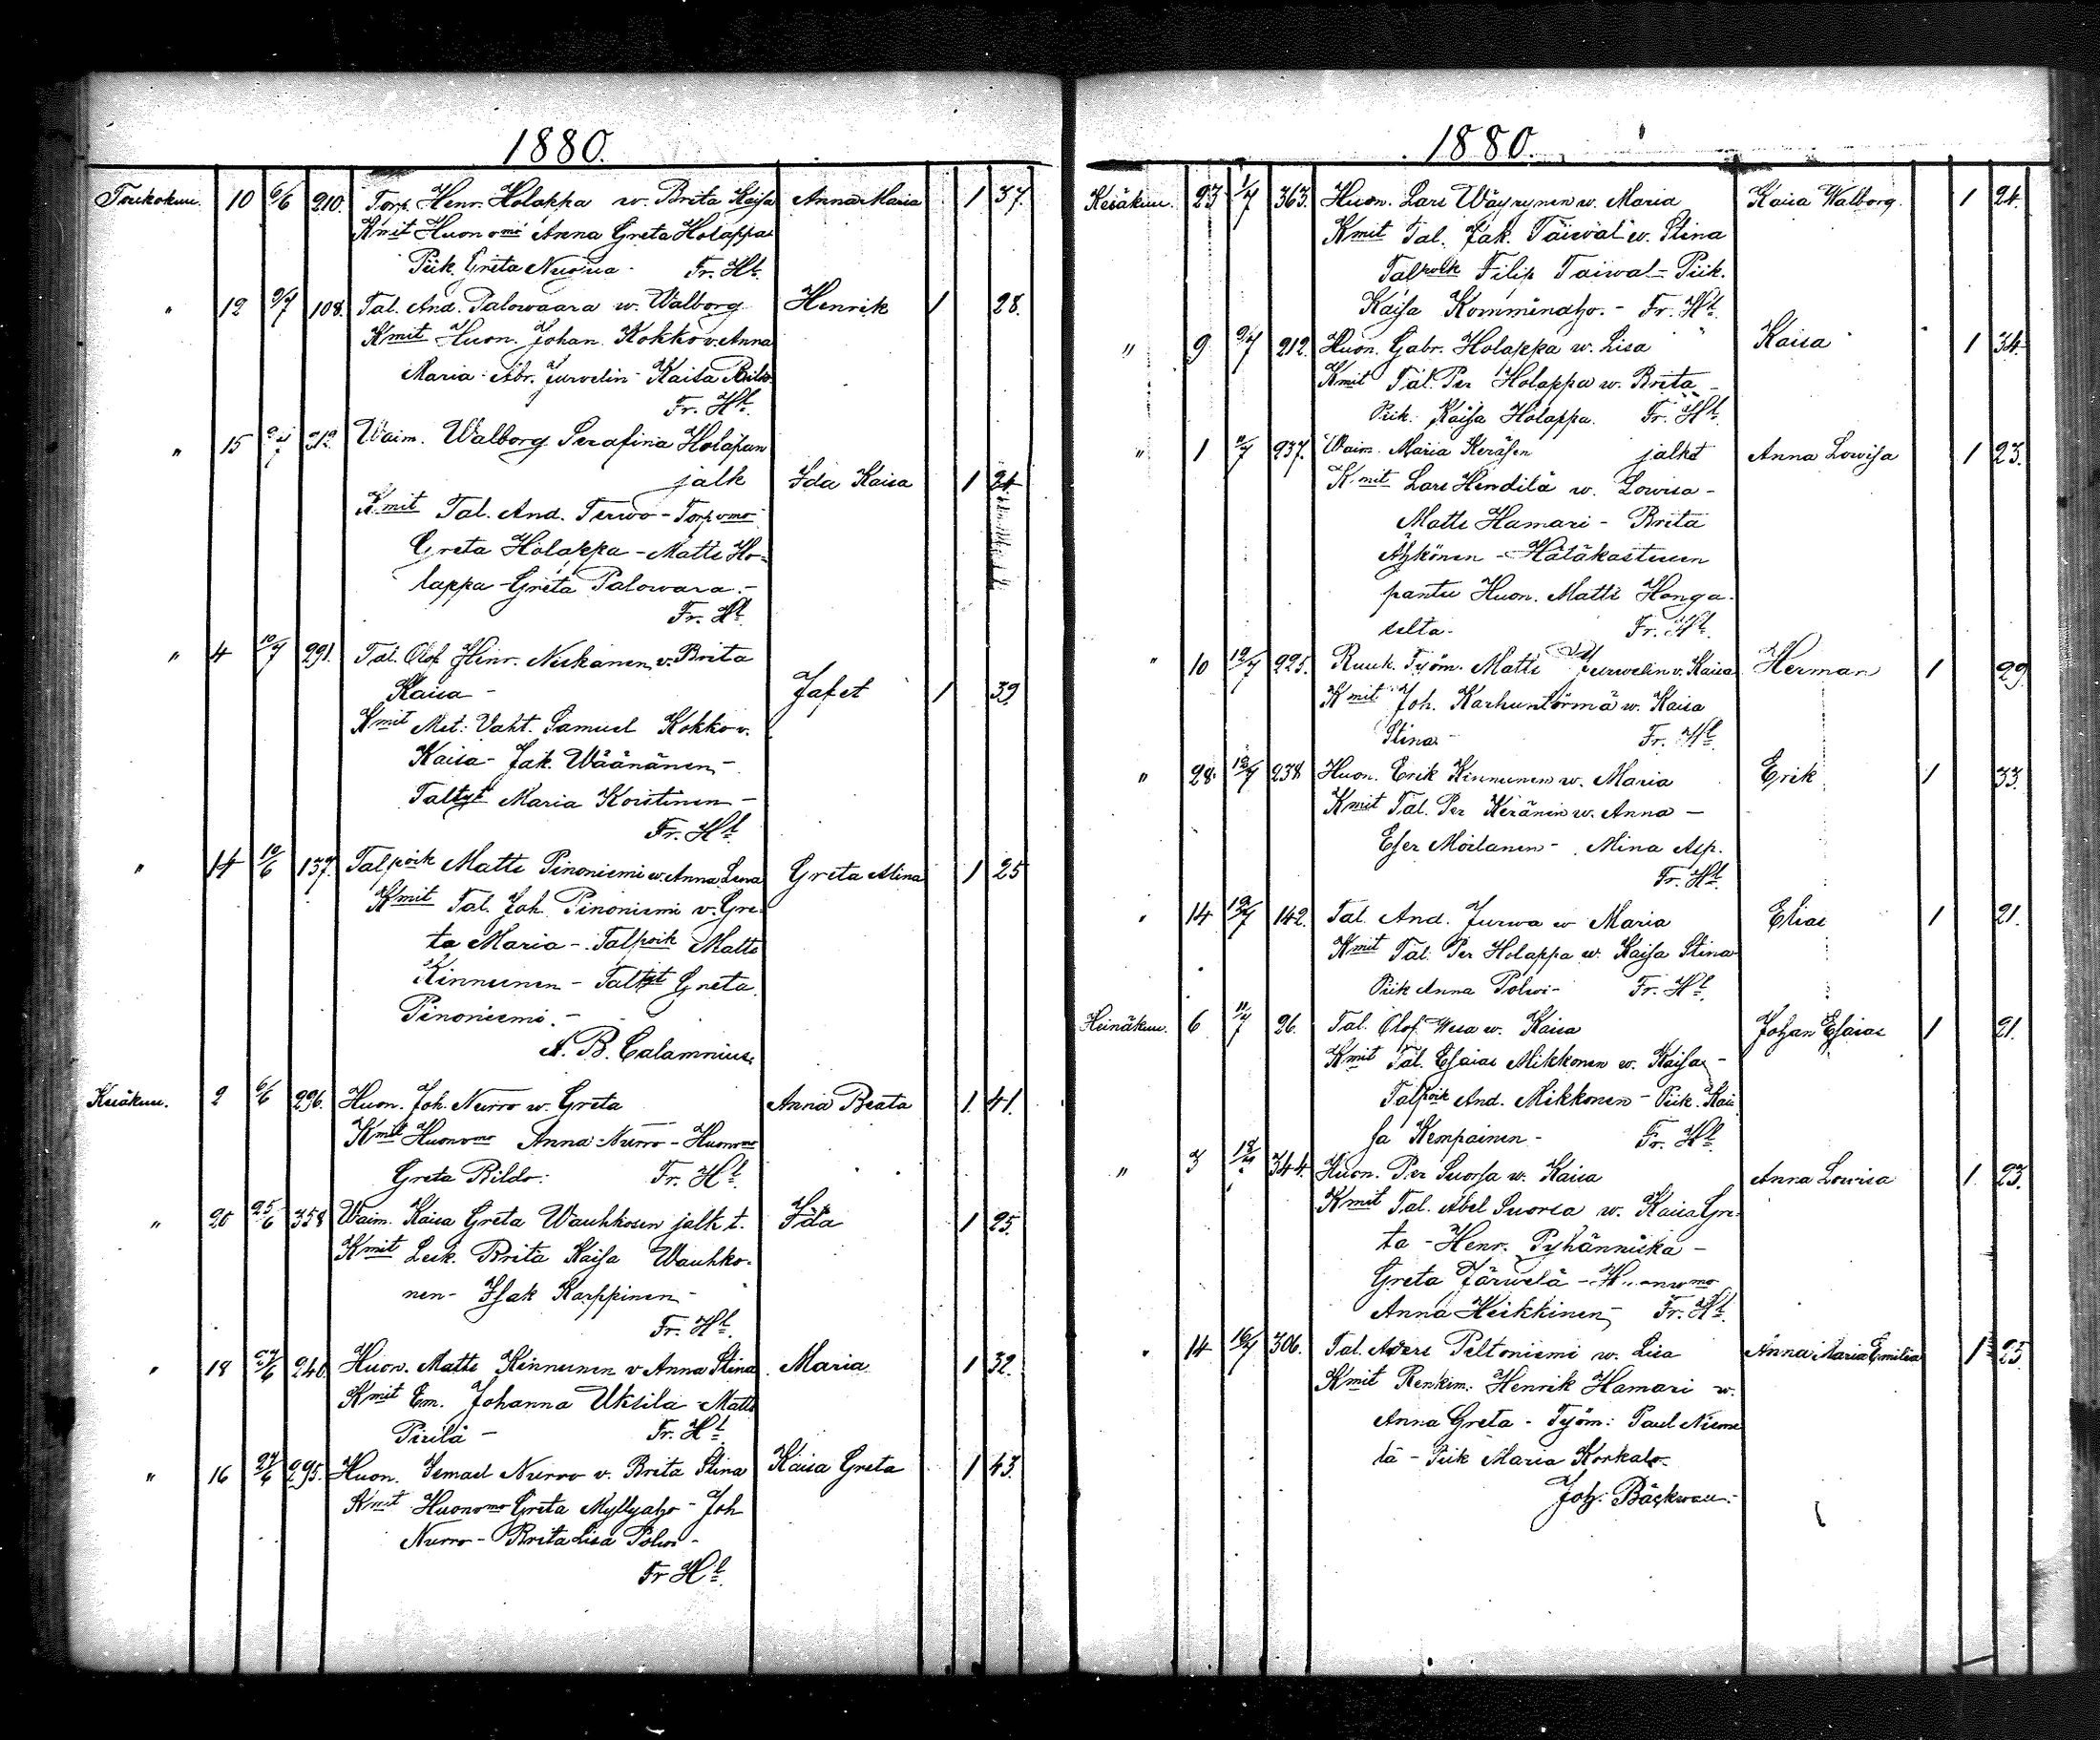 1880.
Toukokuu. 10 6/6 210. Torp. Henr. Holappa w. Brita Kaisa Anna Maria 1 37.
Kmit Huonomo Anna Greta Holappa
Piik. Greta Nuoria - Fr. Ht.
" 12 9/7 108. Tal. And. Palowaara w. Walborg Henrik 1 28.
Kmit Huon. Johan Kokko v. Anna
Maria - Abr. Jurvelin - Kaisa
Fr. Ht.
" 15 212. Waim. Walborg Serafina Holapan
jalk Ida Kaisa 1 24
Kmit Tal. And. Terwo - Torpvmo
Greta Holappa - Matts Ho-
lappa - Greta Palowara. -
Fr. Ht.
" 4 10/7 291. Tal. Olof Hinr. Niskanen v. Brita
Kaisa - Jafet 1 39
Kmit Met: Vaht. Samuel Kokko v.
Kaisa - Jak. Wäänänen -
Taltyt Maria Koistinen -
Fr. Ht.
" 14 10/6 137. Talpoik Matts Pinoniemi w. Anna Lena Greta Alina 1 25
Kmit Tal. Joh. Pinoniemi v. Gre-
ta Maria - Talpoik Matts
Kinnunen - Taltyt Greta
Pinoniemi. -
A. B. Calamnius.
Kesäkuu. 2 6/6 296. Huon. Joh. Nurro w. Greta Anna Beata 1. 41.
Kmit Huonvmo Anna Nurro - Huonvmo
Greta Bildo. Fr. Ht.
" 20 25/6 358 Waim. Kaisa Greta Wauhkosen jalkt. Ida 1 25.
Kmit Lesk. Brita Kaisa Wauhko-
nen - Isak Karppinen -
Fr. Ht.
" 18 27/6 240. Huon. Matts Kinnunen v Anna Stina Maria 1 32.
Kmit Em. Johanna Uksila - Matts
Pirilä - Fr. Ht.
" 16 27/6 295. Huon. Ismael Nurro v. Brita Stina Kaisa Greta 1 43.
Kmit Huonomo Greta Myllyaho - Joh
Nurro - Brita Lisa Polwi -
Fr Ht.
1880.
Kesäkuu. 23 1/7 363. Huon. Lars Wäyrynen w. Maria Kaisa Walborg. 1 24.
Kmit Tal. Jak. Taiwal w. Stina
Talpoik Filip Taiwal - Piik.
Kaisa Komminaho. - Fr. Ht.
" 9 9/7 212. Huon. Gabr. Holappa w. Lisa Kaisa 1 34.
Kmit Tal. Per Holappa w. Brita -
Piik. Kaisa Holappa. Fr. Ht.
" 1 11/7 237. Waim. Maria Keräsen jalkt Anna Lowisa 1 23.
Kmit Lars Hendilä w. Lowisa -
Matts Hamari - Brita
- Hätäkasteen
pantu Huon. Matti Honga-
selta. Fr. Ht.
" 10 12/7 225. Ruuk. Työm. Matts Jurwelin v. Kaisa Herman 1 29
Kmit Joh. Karhuntörmä w. Kaisa
Stina - Fr. Ht.
" 28. 12/7 238 Huon. Erik Kinnunen w. Maria Erik 1 33.
Kmit Tal. Per Keränen w. Anna -
Eser Moilanen - Mina Asp.
Fr. Ht.
" 14 12/7 142. Tal. And. Jurwa w Maria Elias 1 21.
Kmit Tal. Per Holappa w. Kaisa Stina
Piik Anna Polwi - Fr. Ht.
Heinäkuu. 6 11/7 26. Tal. Olof Wesa w. Kaisa Johan Esaias 1 21.
Kmit Tal. Esaias Mikkonen w. Kaisa -
Talpoik And. Mikkonen - Piik. Kai
sa Kempainen - Fr. Ht.
" 3 344. Huon. Per Suorsa w. Kaisa Anna Lowisa 1 23.
Kmit Tal. Abel Suorsa w. Kaisa Gre-
ta - Henr. Pyhänniska -
Greta Järwelä - Huonwmo
Anna Heikkinen - Fr. Ht.
" 14 16/7 306. Tal. Anders Peltoniemi w. Lisa Anna Maria Emilia 1 25
Kmit Renkim. Henrik Hamari w.
Anna Greta - Työm: Paul Nieme
lä - Piik Maria Korkalo.
Joh. Bäckwall. -